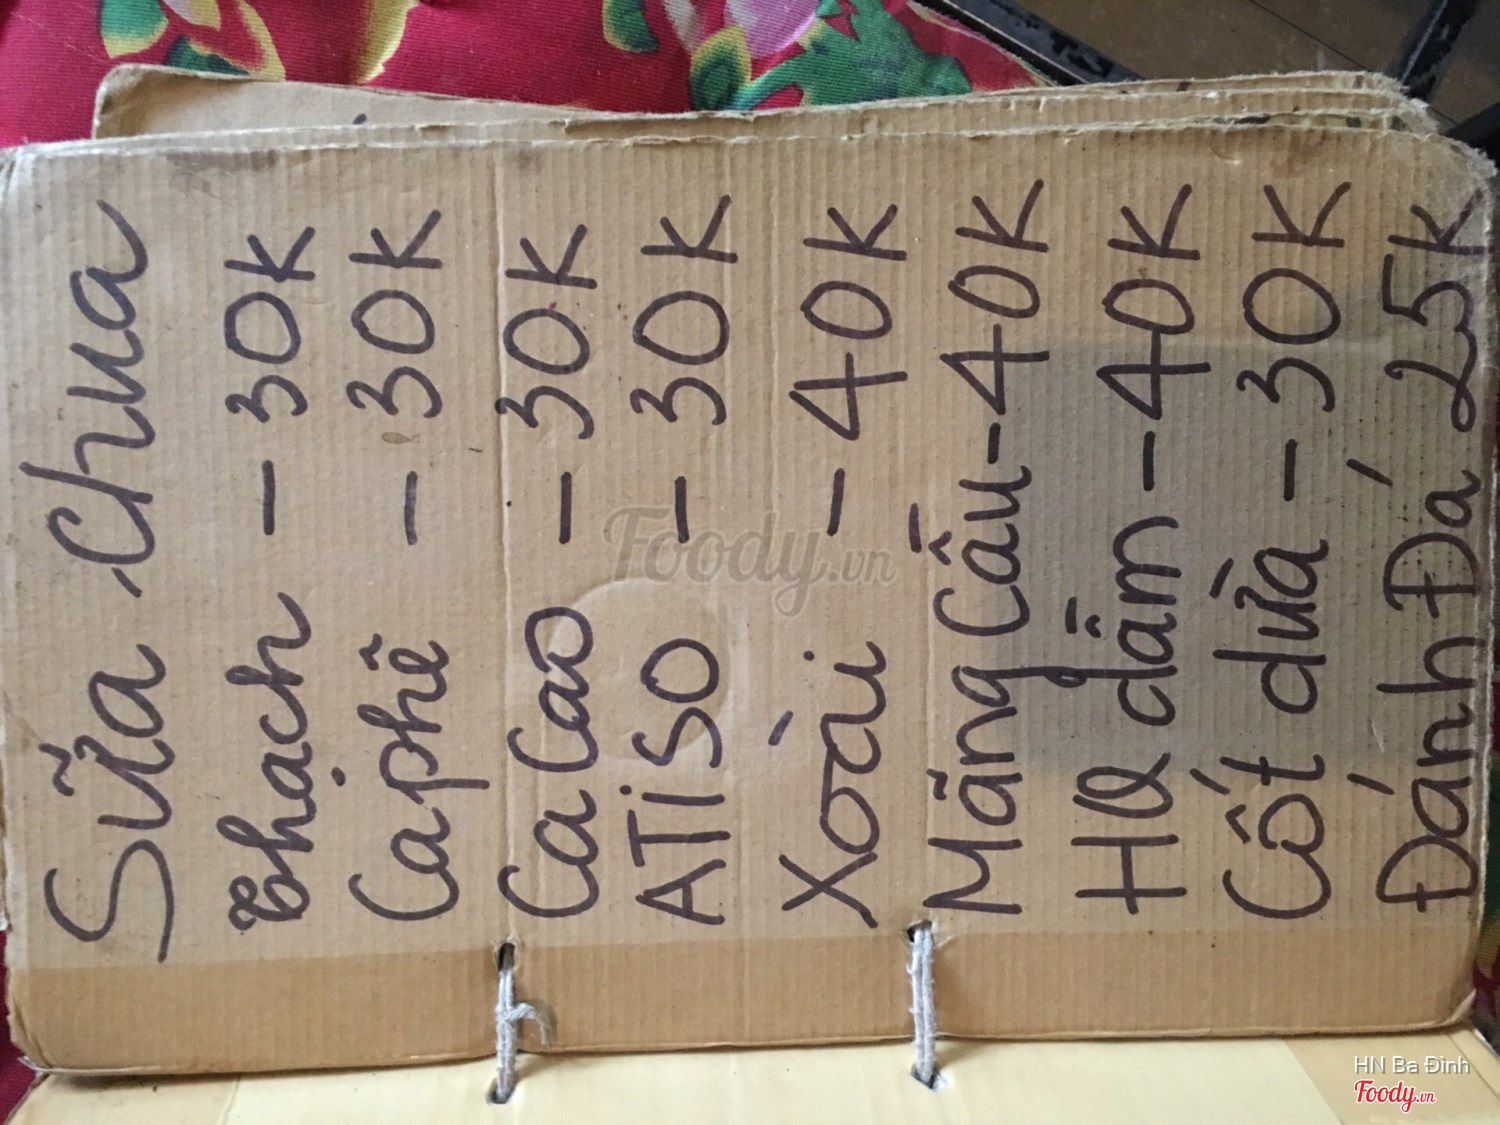 Sữa Chua
Thạch - 30K
Caphê - 30K
CaCao - 30K
ATiSO - 30K
Xoài - 40K
Mãng Cầu - 40K
HQ dầm - 40K
Cốt dừa - 30K
Đánh Đá 25K
Foody.vn
HN Ba Đình
Foody.vn